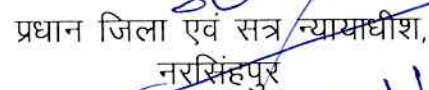 प्रधान जिला एवं सत्र न्यायाधीश,
नरसिंहपुर